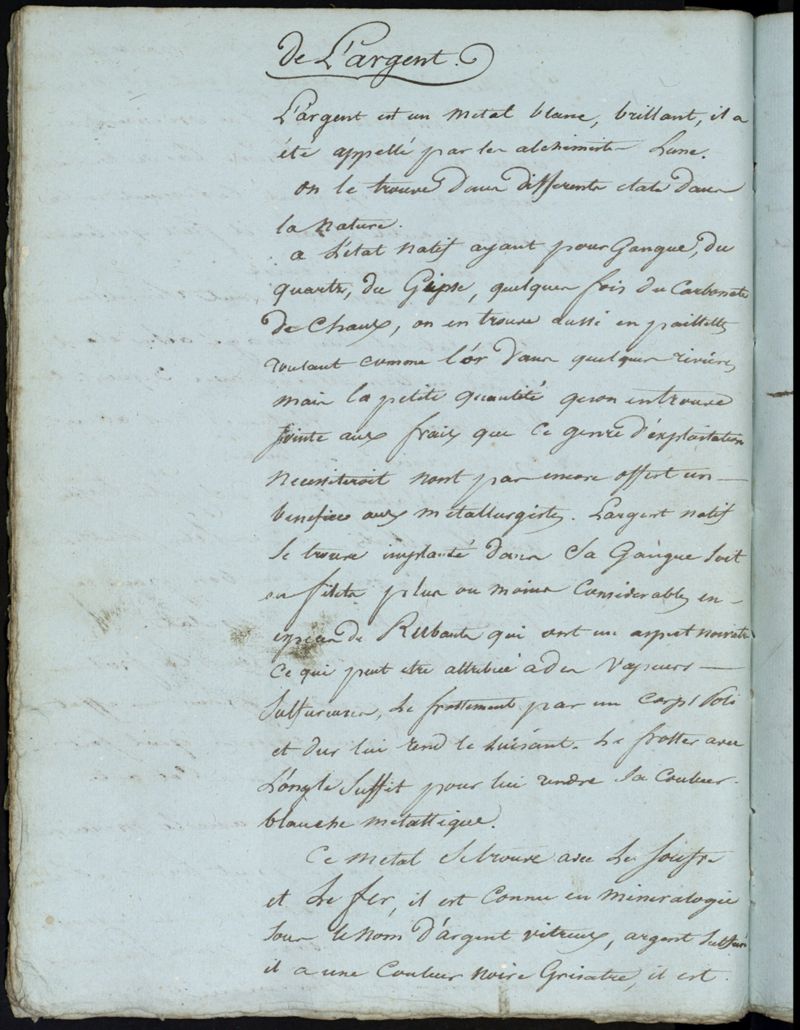 de L'argent.
L'argent est un metal blanc, brillant, il a
été appellé par les alchimistes Lune.
on le trouve dans differents etats dans
la nature.
a L'état natif ayant pour Gangue, du
quartz, du Gipse, quelques fois du Carbonate
de Chaux, on en trouve aussi en paillettes
roulant comme l'or dans quelques rivieres
mais la petite quantité qu'on en trouve
jointe aux frais que ce genre d'exploitation
necessiteroit n'ont pas encore offert un
benefice aux metallurgistes. L'argent natif
se trouve implanté dans sa Gangue soit
en filets plus ou moins considerables en
especes de Rubants qui ont un aspect noiratre
ce qui peut etre attribué a des vapeurs
sulfureuses, le frottement par un corps Poli
et dur lui rend le luisant. Le frotter avec
L'ongle suffit pour lui rendre sa couleur
blanche metallique.
Ce metal se trouve avec le soufre
et le fer, il est connu en mineralogie
sous le nom d'argent vitreux, argent sulfuré
il a une couleur noire Grisatre, il est